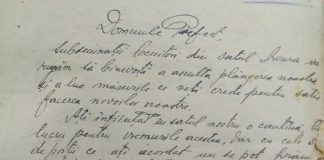 Domnule Prefect,
Subsemnatii locuitori din satul
rugăm să binevoiți a asculta plângerea noastră
și a lua măsurile ce veți crede pentru satis
facerea nevoilor noastre.
Ați înființat în satul nostru o cantină,
lucru pentru vremurile acestea, dar cu cele
de porții ce ați acordat nu se pot hrăni